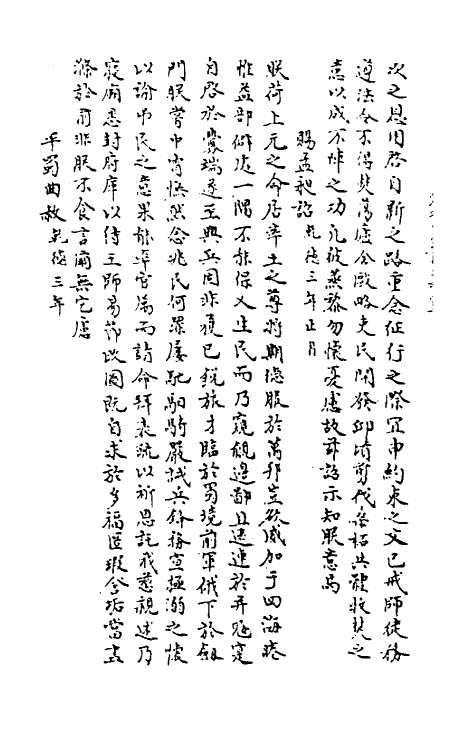 次之恩用啓自新之路重念征行之際宜申約束之文已戒師徒務
遵法令不得焚蕩廬舍毆略吏民開發邱墳剪伐桑柘共體救焚之
意以成不陣之功凡彼蒸黎勿懷憂慮故茲詔示知朕意焉
賜孟昶詔乾德三年正月
朕荷上元之命居率土之尊將期德服於萬邦豈欲威加于四海睠
惟益部僻處一隅不能保乂生民而乃窺覦邊鄙且速連於并寇寔
自啓於釁端遂至興兵固非獲已銳旅才臨於蜀境前軍俄下於劍
門朕嘗中宵憮然念兆民何罪屢馳馹騎嚴誡兵鋒務宣拯溺之懷
以諭弔民之意果能率官屬而請命拜表疏以祈恩託戎慈親述乃
寢廟悉封府庫以待王師易節改圖既自求於多福匿瑕含垢當盡
滌於前非朕不食言爾無它慮
平蜀曲赦乾德三年